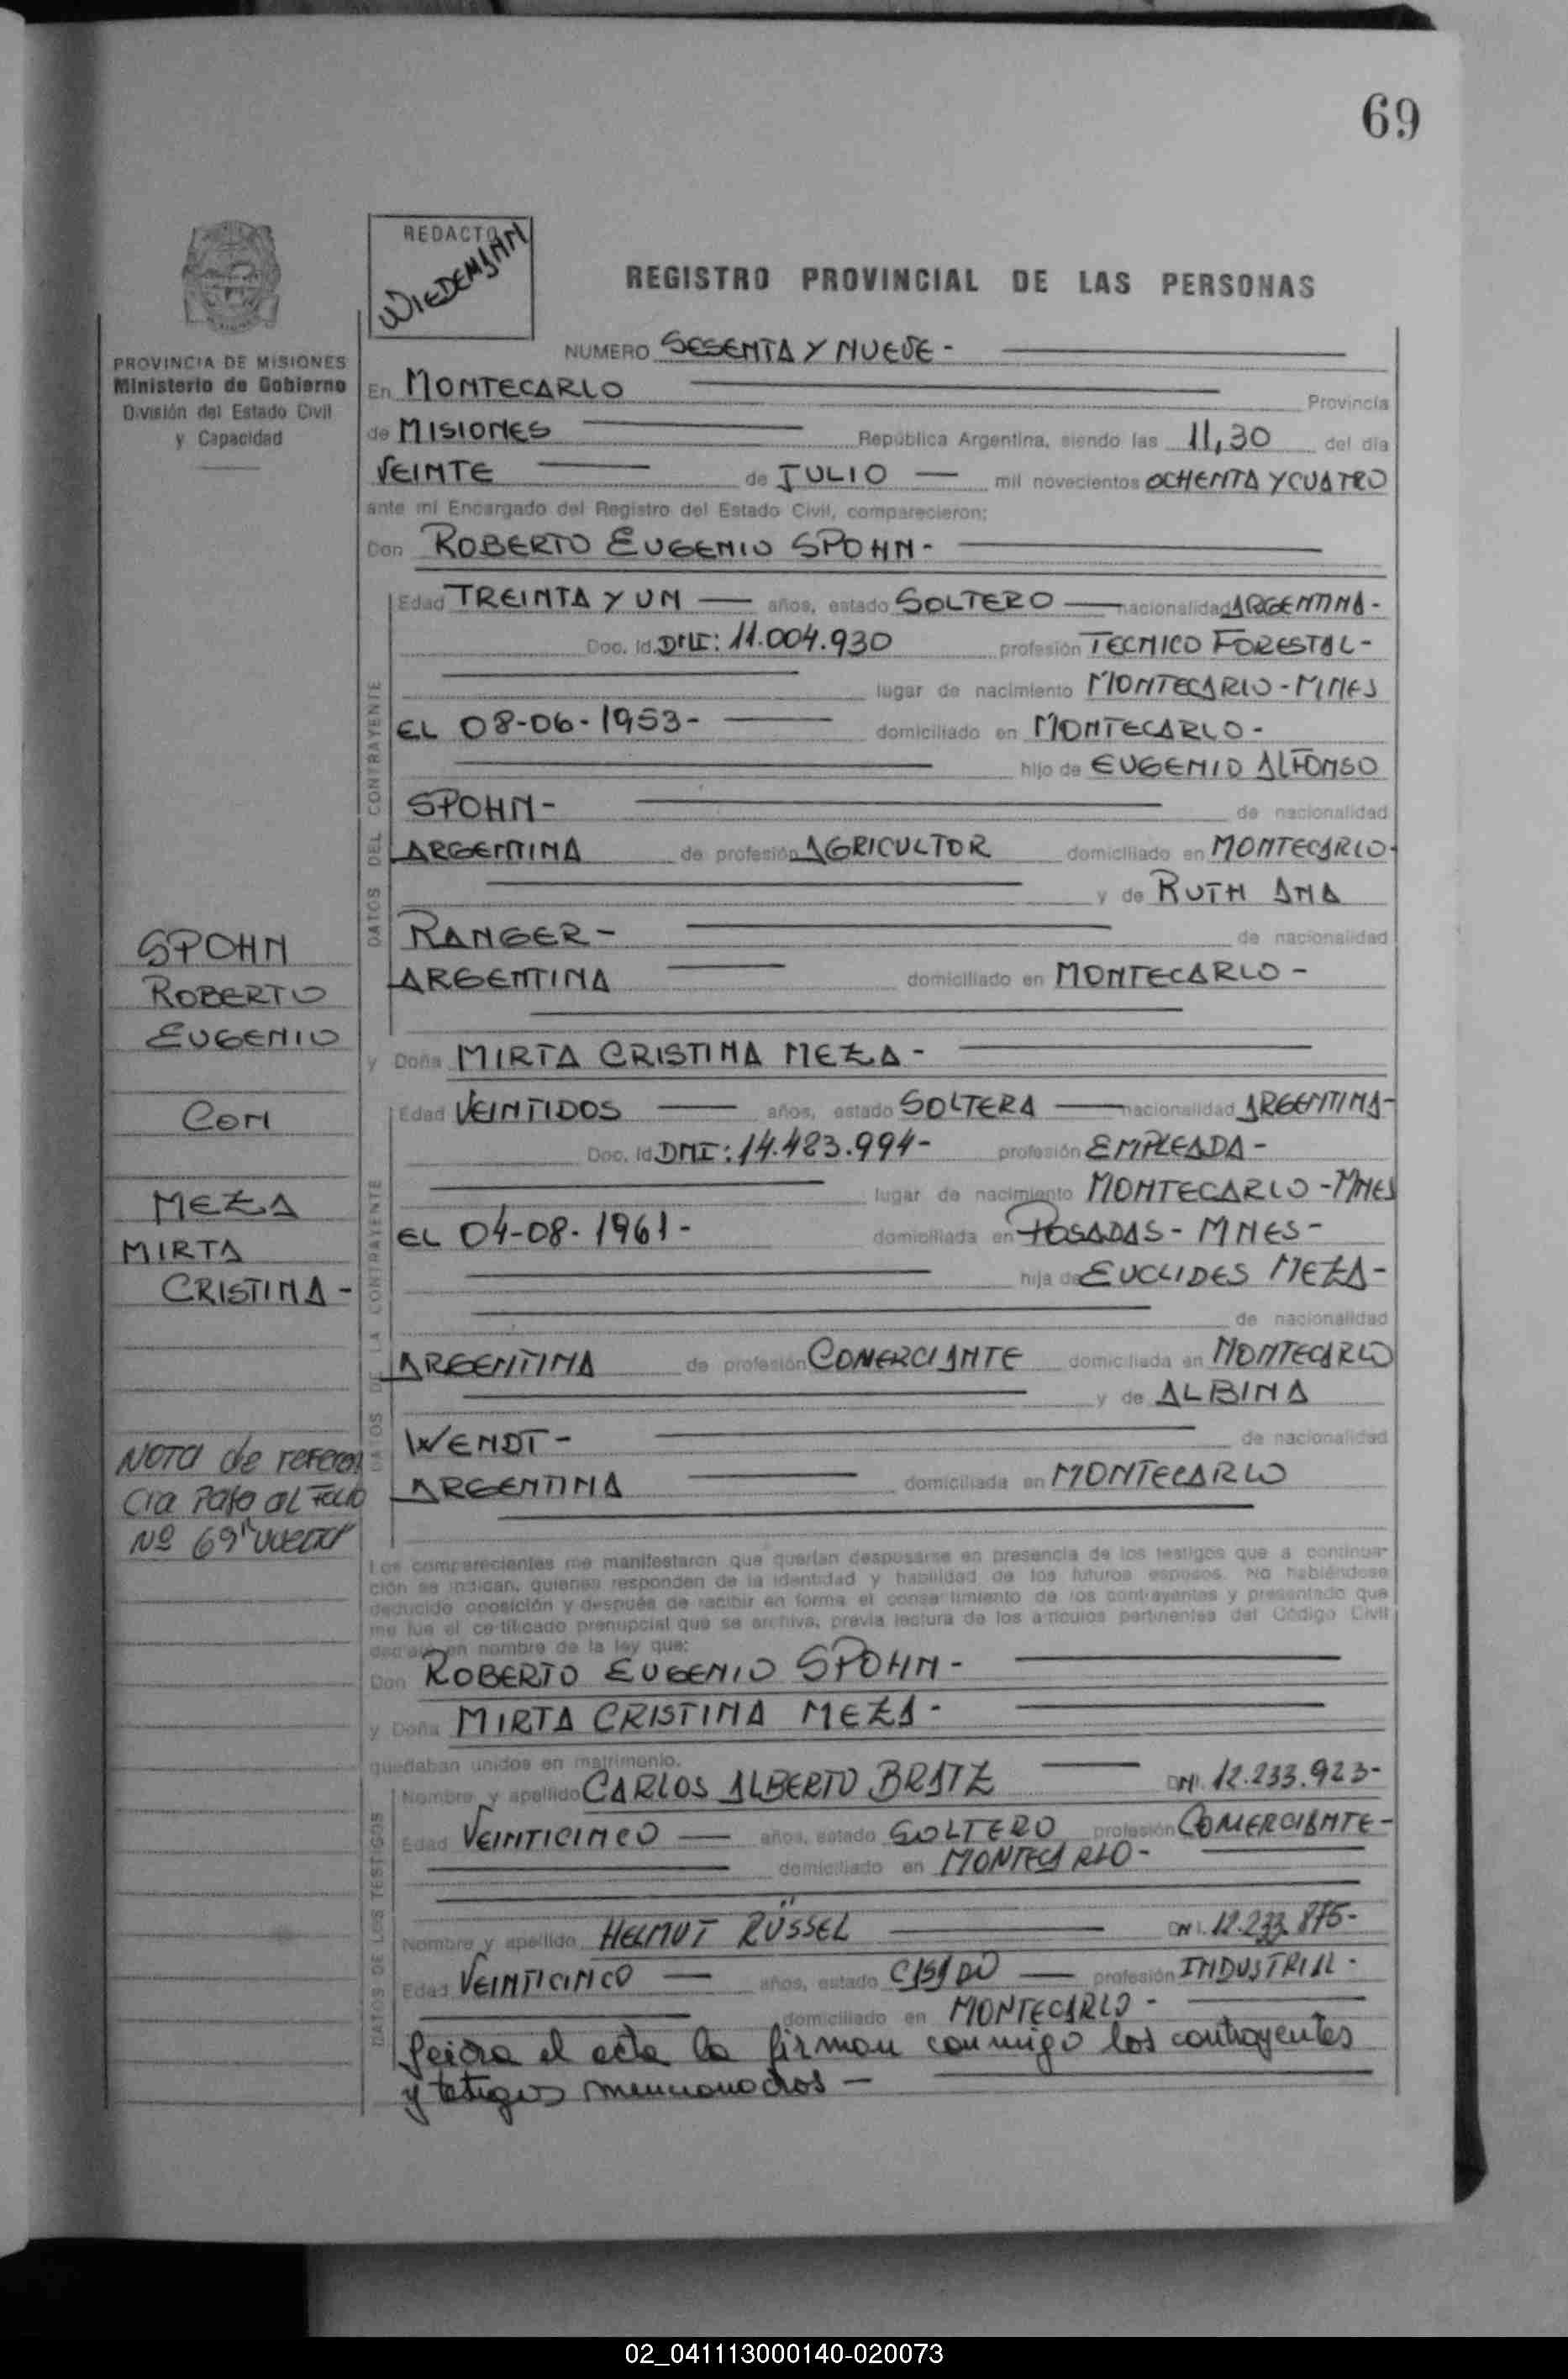 69
REDACTO
WIEDEMANN
REGISTRO PROVINCIAL DE LAS PERSONAS
PROVINCIA DE MISIONES
Ministerio de Gobierno
División del Estado Civil
y Capacidad
NUMERO SESENTA Y NUEVE -
En MONTECARLO Provincia
de MISIONES República Argentina, siendo las 11,30 del día
VEINTE de JULIO mil novecientos OCHENTA Y CUATRO
ante mi Encargado del Registro del Estado Civil, comparecieron:
Don ROBERTO EUGENIO SPOHN -
DATOS DEL CONTRAYENTE
Edad TREINTA Y UN años, estado SOLTERO nacionalidad ARGENTINA -
Doc. Id. DNI: 11.004.930 profesión TECNICO FORESTAL -
lugar de nacimiento MONTECARLO - MNES
EL 08-06-1953 - domiciliado en MONTECARLO -
hijo de EUGENIO ALFONSO
SPOHN - de nacionalidad
ARGENTINA de profesión AGRICULTOR domiciliado en MONTECARLO -
y de RUTH ANA
RANGER - de nacionalidad
ARGENTINA domiciliado en MONTECARLO -
SPOHN
ROBERTO
EUGENIO
CON
MEZA
MIRTA
CRISTINA -
y Doña MIRTA CRISTINA MEZA -
DATOS DE LA CONTRAYENTE
Edad VEINTIDOS años, estado SOLTERA nacionalidad ARGENTINA -
Doc. Id. DNI: 14.423.994 - profesión EMPLEADA -
lugar de nacimiento MONTECARLO - MNES
EL 04-08-1961 - domiciliada en POSADAS - MNES -
hija de EUCLIDES MEZA -
de nacionalidad
ARGENTINA de profesión COMERCIANTE domiciliada en MONTECARLO
y de ALBINA
WENDT - de nacionalidad
ARGENTINA domiciliada en MONTECARLO
NOTA de referen
cia Pasa al Folio
Nº 69 vuelta
Los comparecientes me manifestaron que querían desposarse en presencia de los testigos que a continua-
ción se indican, quienes responden de la identidad y habilidad de los futuros esposos. No habiéndose
deducido oposición y después de recibir en forma el consentimiento de los contrayentes y presentado que
me fue el certificado prenupcial que se archiva, previa lectura de los artículos pertinentes del Código Civil
declaré en nombre de la ley que:
Don ROBERTO EUGENIO SPOHN -
y Doña MIRTA CRISTINA MEZA -
quedaban unidos en matrimonio.
DATOS DE LOS TESTIGOS
Nombre y apellido CARLOS ALBERTO BRATZ DNI. 12.233.923 -
Edad VEINTICINCO años, estado SOLTERO profesión COMERCIANTE -
domiciliado en MONTECARLO -
Nombre y apellido HELMUT RÜSSEL DNI. 12.233.875 -
Edad VEINTICINCO años, estado CASADO profesión INDUSTRIAL -
domiciliado en MONTECARLO -
Leida el acta la firman conmigo los contrayentes
y testigos mencionados -
02_041113000140-020073